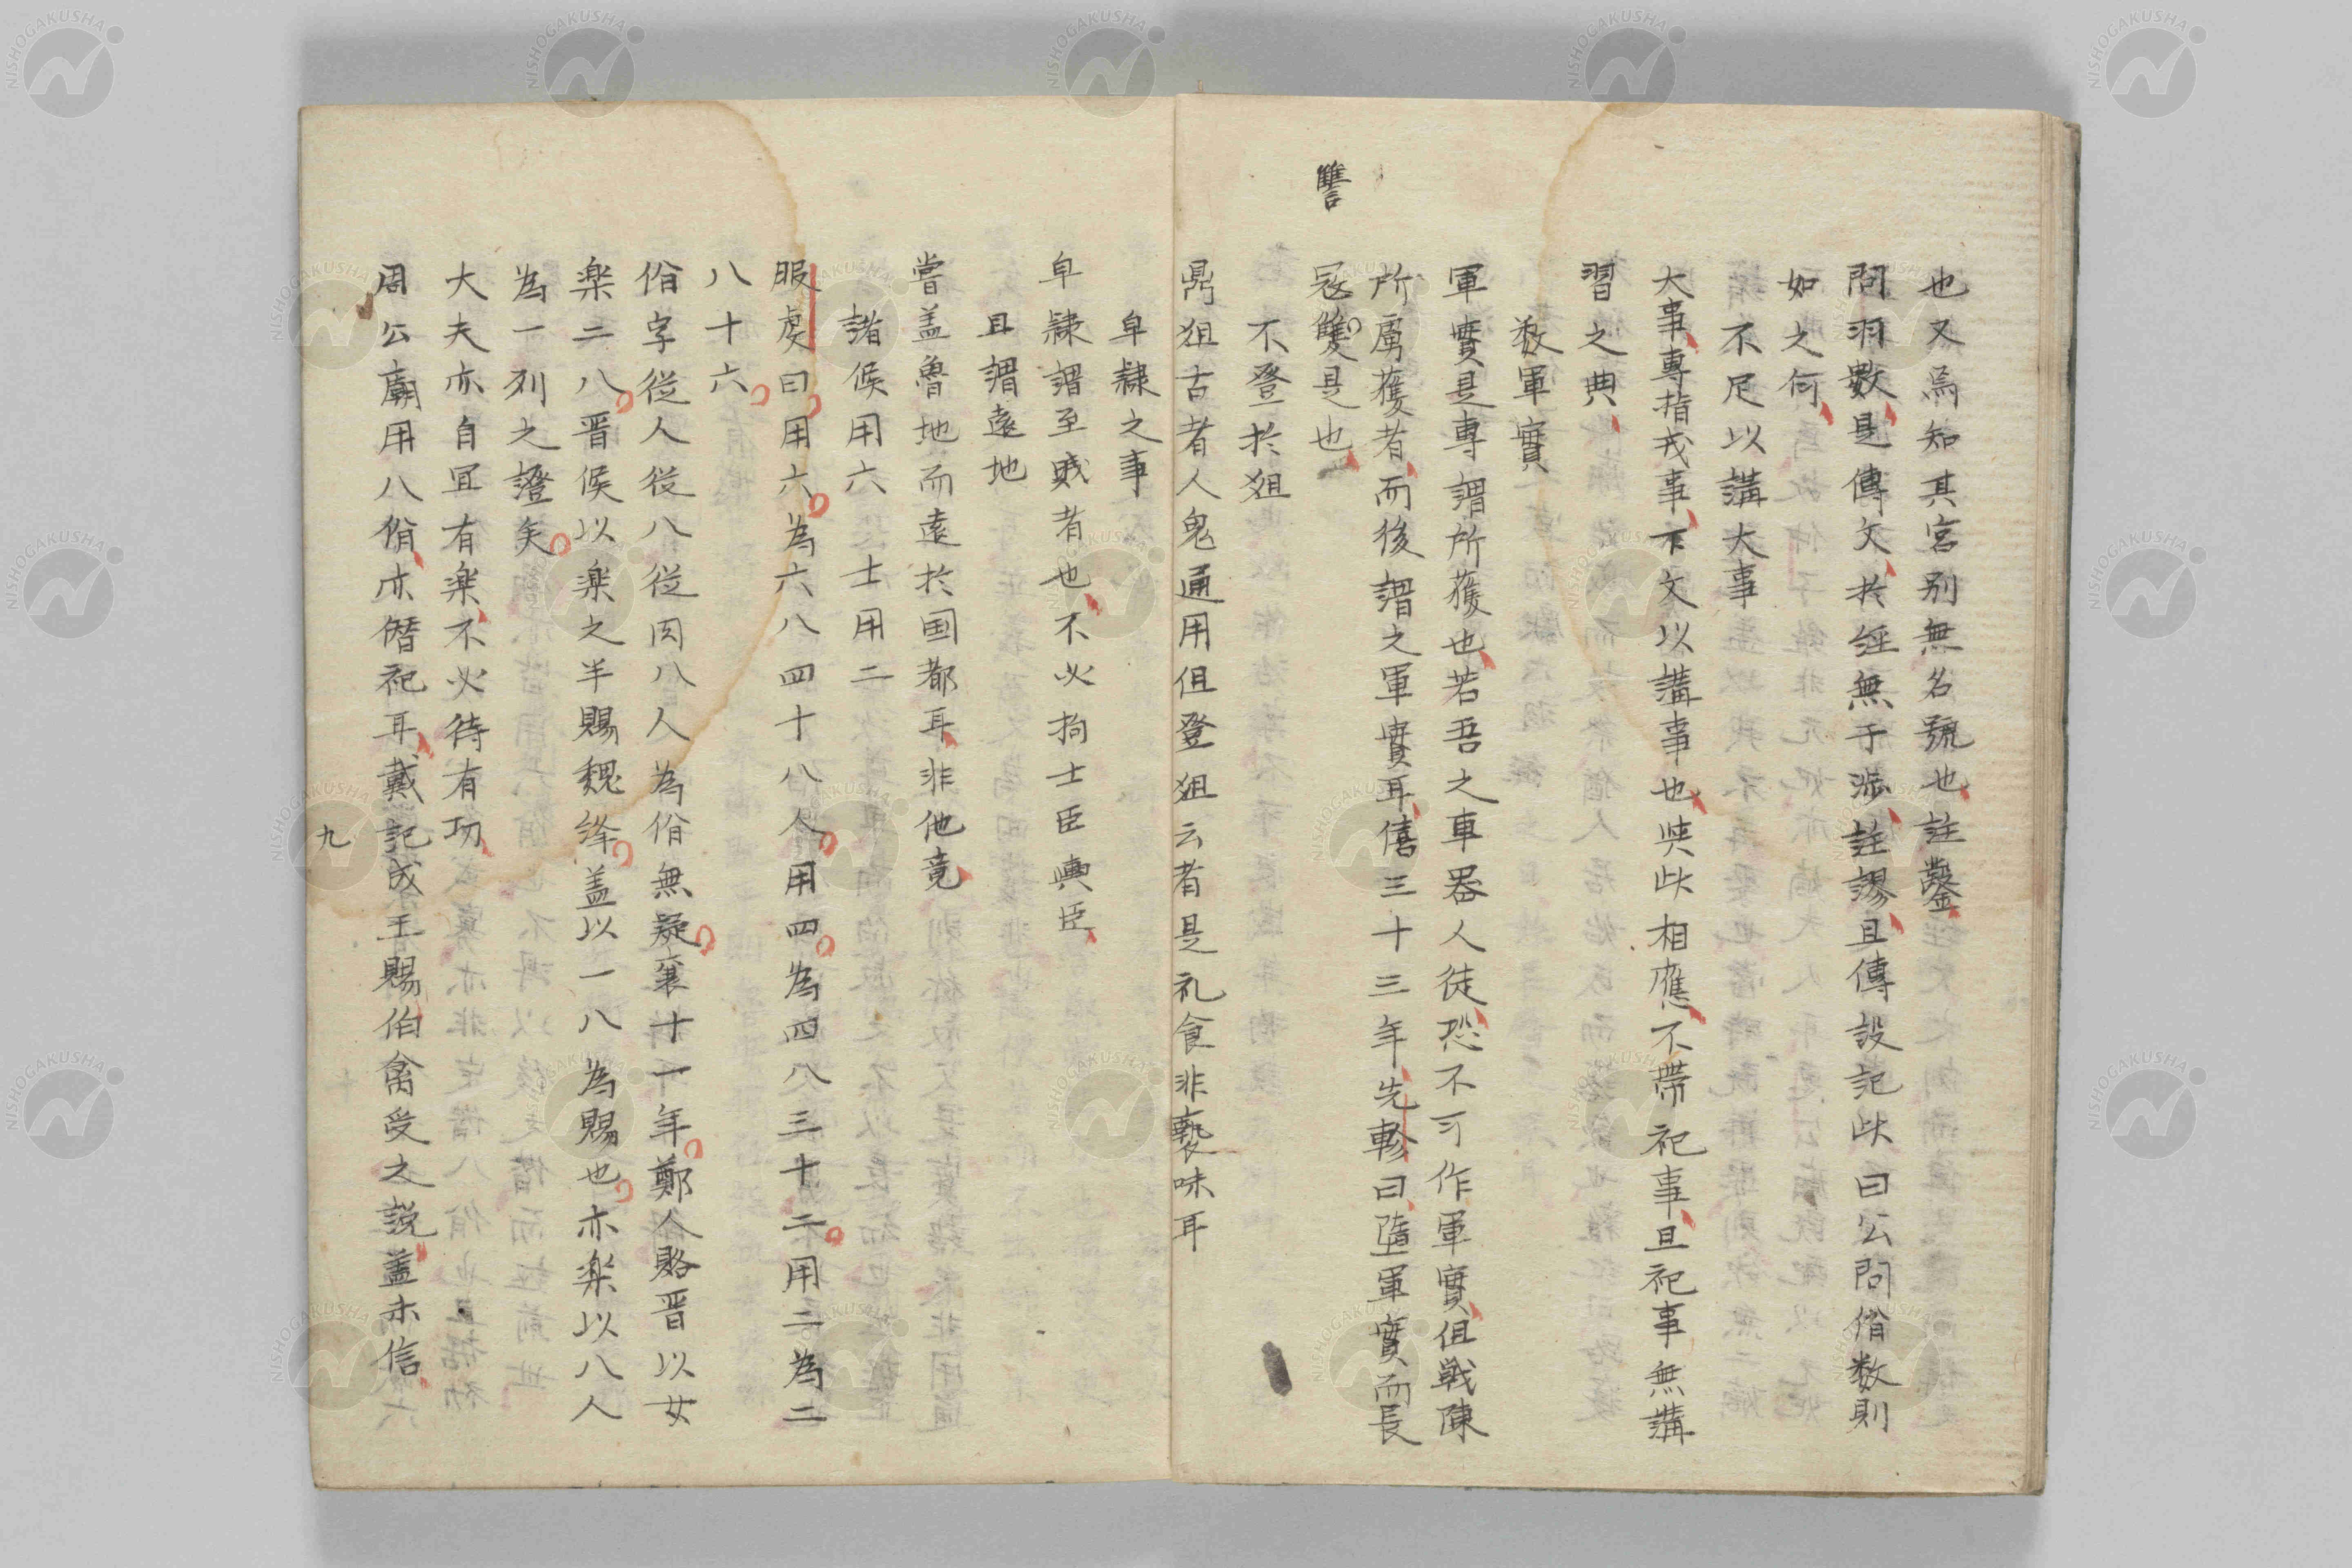 也又焉知其宮別無名號也註鑿
問羽數是傳文於經無干渉註謬且傳設記此曰公問佾数則
如之何
不足以講大事
大事專指戎事下文以講事也與此相應不帶祀事且祀事無講
習之典
数軍實
軍實是專謂所獲也若吾之車器人徒恐不可作軍實但戦陳
所虜獲者而後謂之軍實耳僖三十三年先軫曰墮軍實而長
讐
冦雙是也
不登於爼
鼎爼古者人鬼通用但登爼云者是礼食非褻味耳
皁隷之事
皁隷謂至賎者也不必拘士臣輿臣
且謂遠地
嘗盖魯地而遠於国都耳非他竟
諸侯用六　士用二
服虔曰用六為六八四十八人用四為四八三十二用二為二
八十六
佾字從人從八從肉八人為佾無疑襄十一年鄭人賂晋以女
楽二八晋侯以楽之半賜魏絳盖以一八為賜也亦楽以八人
為一列之證矣
大夫亦自冝有楽不必待有功
周公廟用八佾亦僭祀耳戴記成王賜伯禽受之説盖未信
九
NISHOGAKUSHA